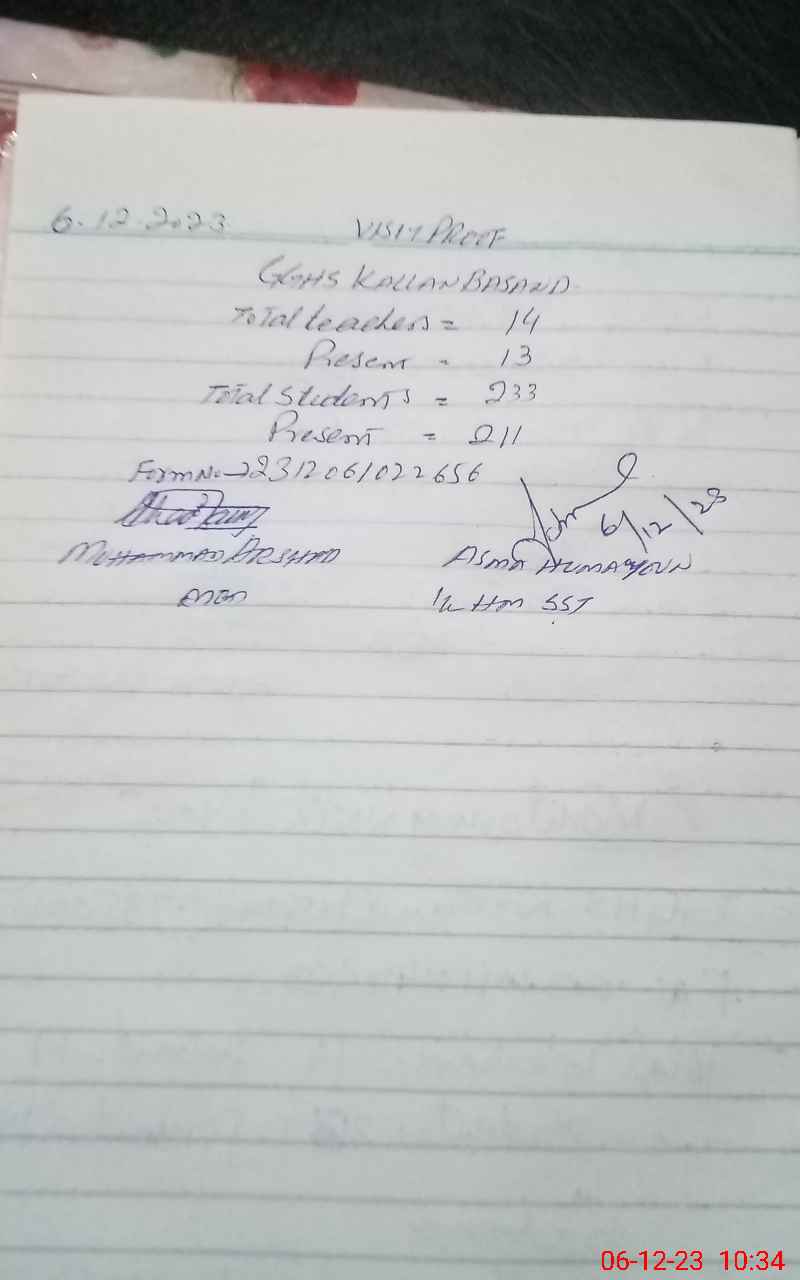 6.12.2023 VISIT PROOF
GGHS KALLAN BASAND
Total teachers = 14
Present - 13
Total Students = 233
Present = 211
Form No - 2312061022656
6/12/23
MUHAMMAD ARSHAD ASMA HUMAYOUN
MEA I/C HM SST
06-12-23 10:34